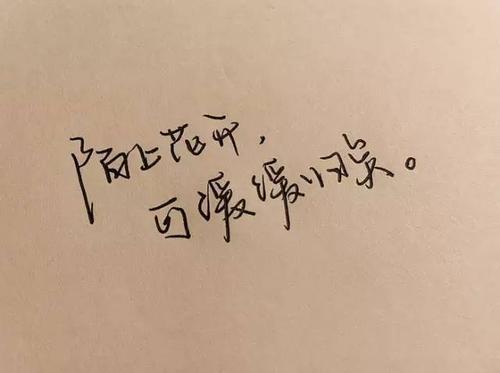 陌上花开，
可缓缓归矣。